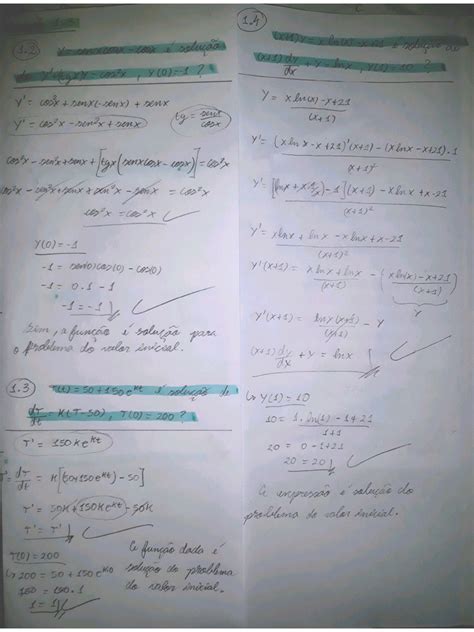 1.2
y = senxcosx - cosx é solução
de y' + tgx y = cos²x , y(0) = -1 ?
y' = cos²x + senx(-senx) + senx
y' = cos²x - sen²x + senx
tg = senx/cosx
cos²x - sen²x + senx + [tgx(senxcosx - cosx)] = cos²x
cos²x - sen²x + senx + sen²x - senx = cos²x
cos²x = cos²x
y(0) = -1
-1 = sen(0)cos(0) - cos(0)
-1 = 0.1 - 1
-1 = -1
Sim, a função é solução para
o problema do valor inicial.
1.3
T(t) = 50 + 150e^kt é solução de
dT/dt = K(T-50), T(0) = 200 ?
T' = 150Ke^kt
T' = dT/dt = K[(50+150e^kt) - 50]
T' = 50K + 150Ke^kt - 50K
T' = T'
T(0) = 200
↳ 200 = 50 + 150e^k0
150 = 150.1
1 = 1
A função dada é
solução do problema
do valor inicial.
1.4
(x+1)y = x ln(x) - x + 21 é solução de
(x+1) dy/dx + y = lnx , y(1) = 10 ?
y = x ln(x) - x + 21 / (x+1)
y' = (x lnx - x + 21)'(x+1) - (x lnx - x + 21).1 / (x+1)²
y' = [(lnx + x 1/x) - 1](x+1) - x lnx + x - 21 / (x+1)²
y' = x lnx + lnx - x lnx + x - 21 / (x+1)²
y'(x+1) = x lnx + lnx / (x+1) - (x ln(x) - x + 21 / (x+1))
y
y'(x+1) = lnx (x+1) / (x+1) - y
(x+1) dy/dx + y = lnx
↳ y(1) = 10
10 = 1.ln(1) - 1 + 21 / 1+1
20 = 0 - 1 + 21
20 = 20
A expressão é solução do
problema do valor inicial.